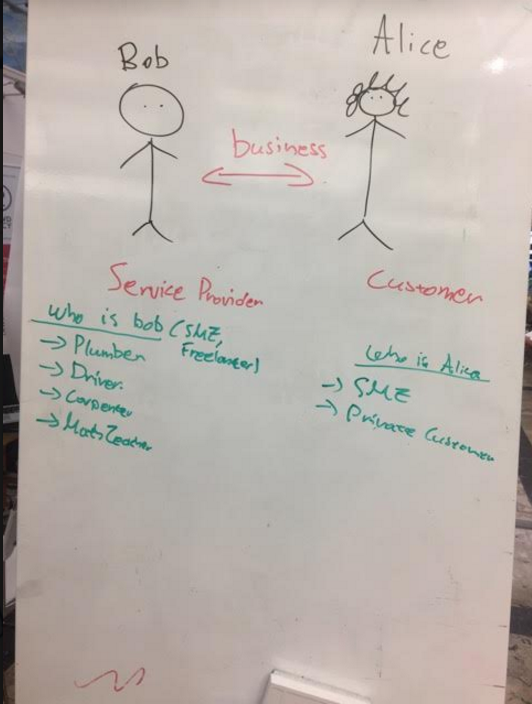 Bob
Alice
business
Service Provider
Customer
who is bob (SME,
Freelancer)
→ Plumber
→ Driver.
→ Carpenter
→ Maths Teacher
Who is Alice
→ SME
→ Private Customer